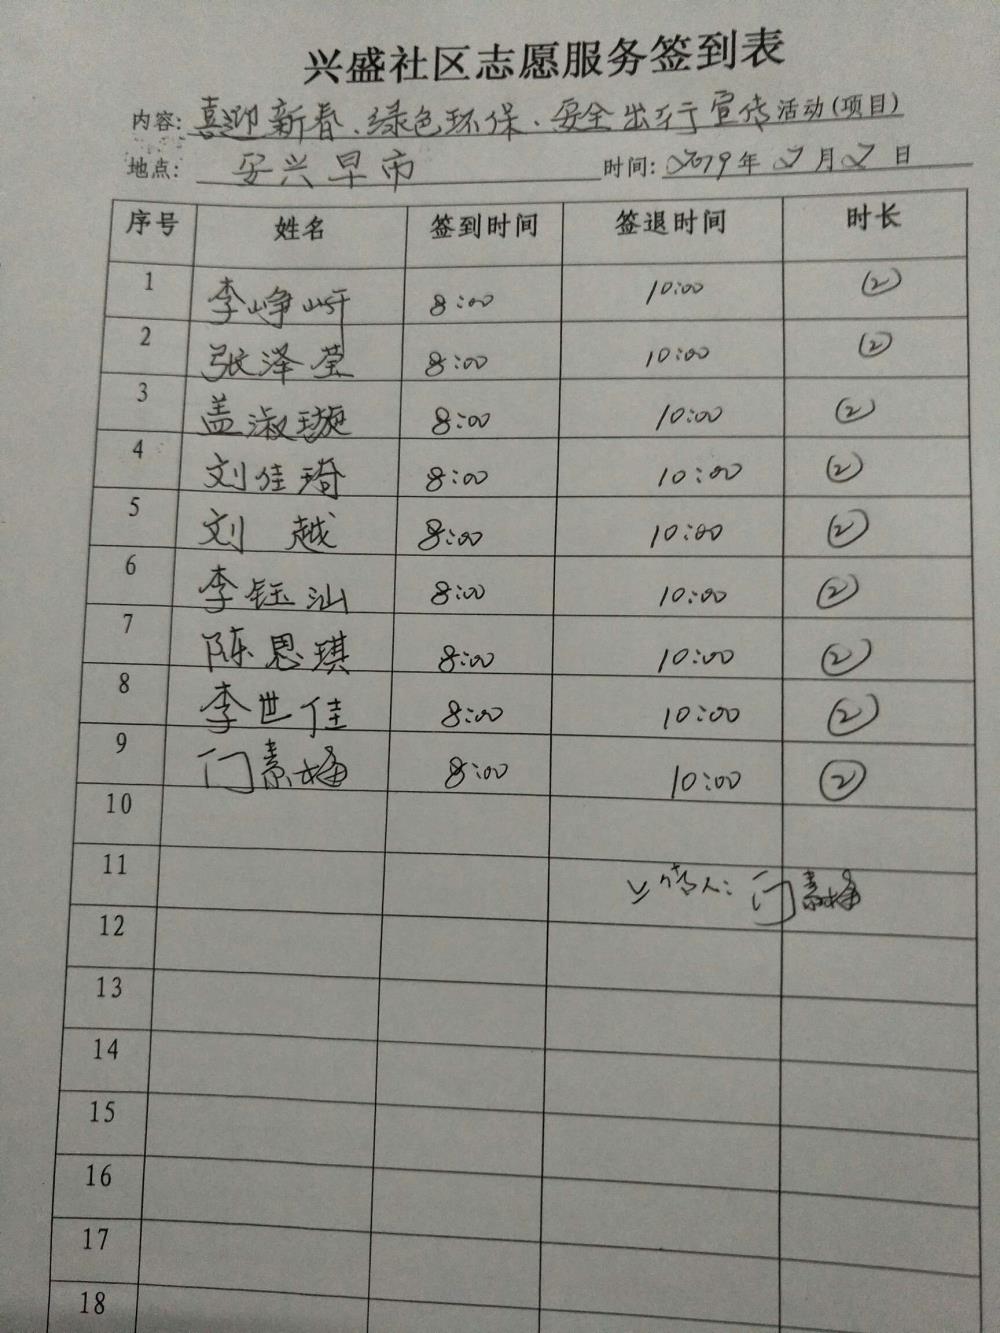 兴盛社区志愿服务签到表
内容: 喜迎新春、绿色环保、安全出行宣传活动(项目)
地点: 安兴早市 时间: 2019年2月2日
序号 姓名 签到时间 签退时间 时长
1 李峥屿 8:00 10:00 ②
2 张泽莹 8:00 10:00 ②
3 盖淑璇 8:00 10:00 ②
4 刘佳琦 8:00 10:00 ②
5 刘越 8:00 10:00 ②
6 李钰汕 8:00 10:00 ②
7 陈恩琪 8:00 10:00 ②
8 李世佳 8:00 10:00 ②
9 门素梅 8:00 10:00 ②
10
11 人: 门素梅
12
13
14
15
16
17
18